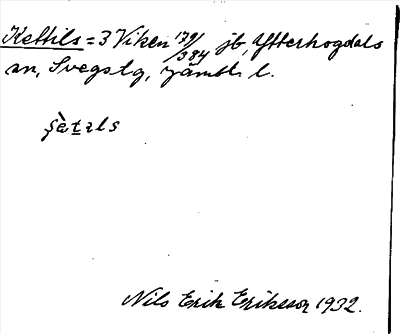 Kettils = 3 Viken 179/384 jb, Ytterhogdals
sn, Svegs tg, Jämtl. l.
Nils Erik Eriksson 1932.